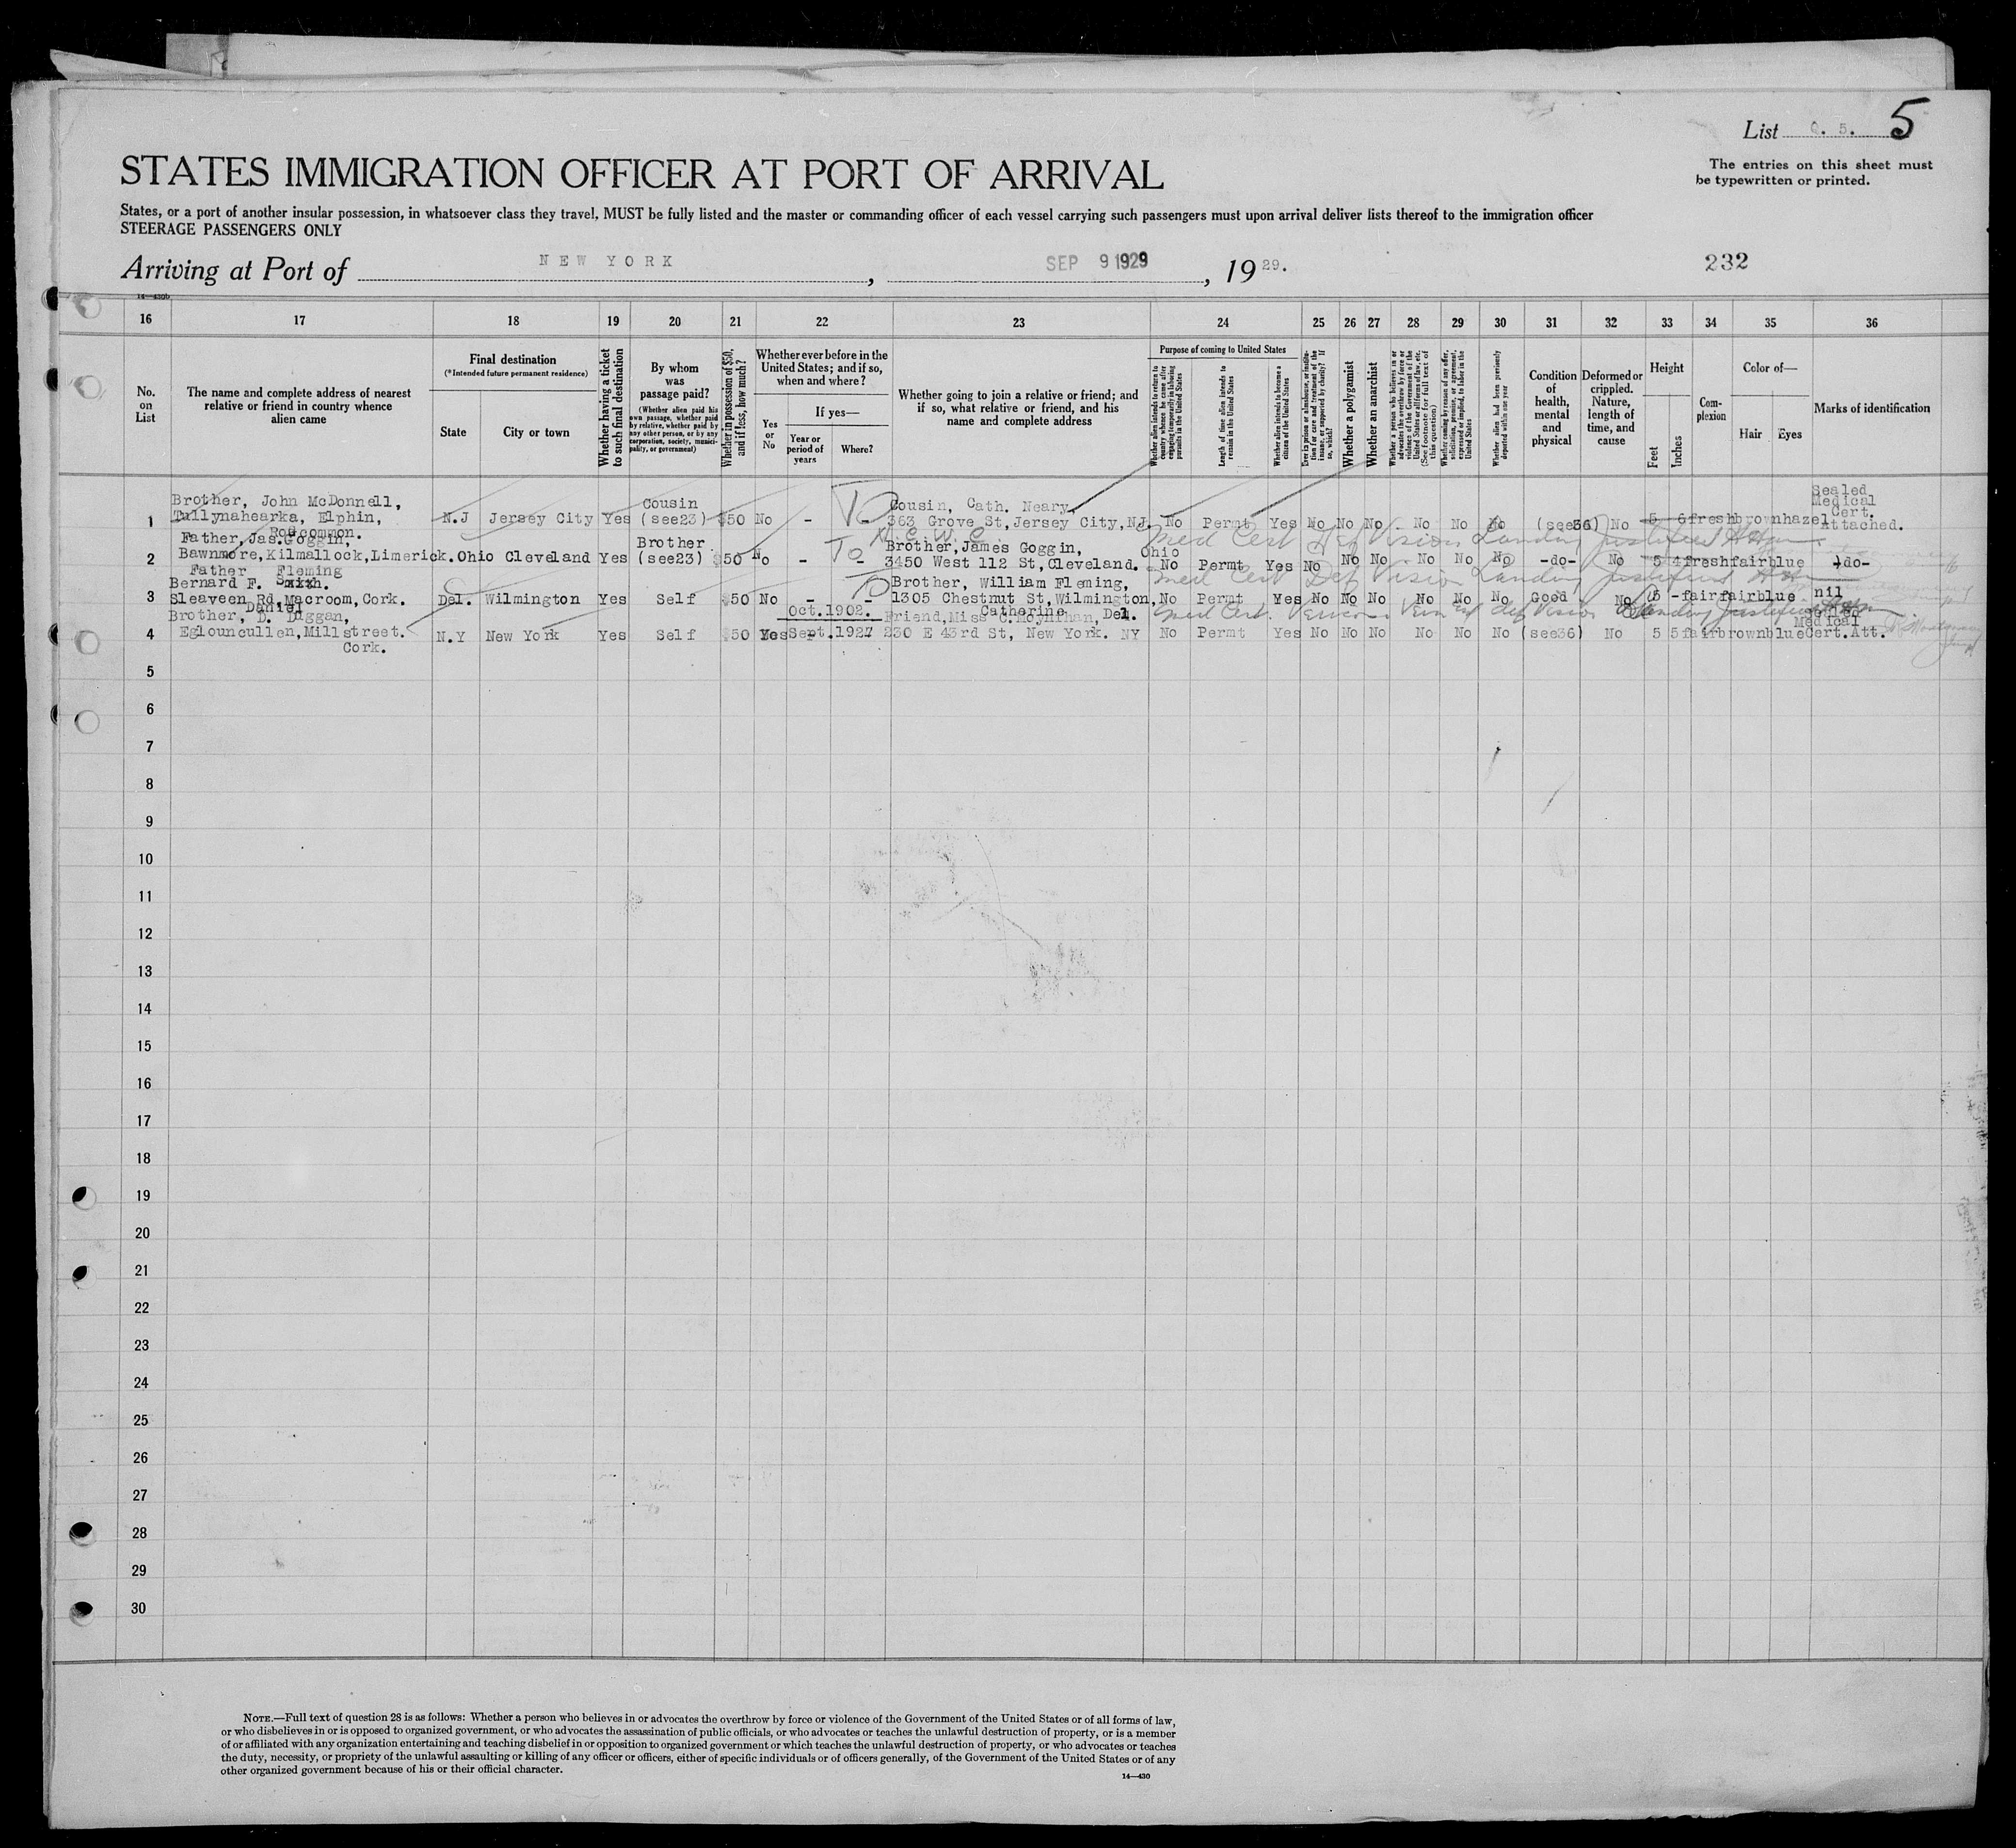 List Q. 5. 5
STATES IMMIGRATION OFFICER AT PORT OF ARRIVAL
The entries on this sheet must
be typewritten or printed.
States, or a port of another insular possession, in whatsoever class they travel, MUST be fully listed and the master or commanding officer of each vessel carrying such passengers must upon arrival deliver lists thereof to the immigration officer
STEERAGE PASSENGERS ONLY
Arriving at Port of NEW YORK, SEP 9 1929, 19 29.
232
14—430b
16 17 18 19 20 21 22 23 24 25 26 27 28 29 30 31 32 33 34 35 36
No.
on
List
The name and complete address of nearest
relative or friend in country whence
alien came
Final destination
(*Intended future permanent residence)
State
City or town
Whether having a ticket
to such final destination
By whom
was
passage paid?
(Whether alien paid his
own passage, whether paid
by relative, whether paid by
any other person, or by any
corporation, society, munici-
pality, or government)
Whether in possession of $50,
and if less, how much?
Whether ever before in the
United States; and if so,
when and where?
Yes
or
No
If yes—
Year or
period of
years
Where?
Whether going to join a relative or friend; and
if so, what relative or friend, and his
name and complete address
Purpose of coming to United States
Whether alien intends to return to
country whence he came after
engaging temporarily in laboring
pursuits in the United States
Length of time alien intends to
remain in the United States
Whether alien intends to become a
citizen of the United States
Ever in prison or almshouse, or institu-
tion for care and treatment of the
insane, or supported by charity? If
so, which?
Whether a polygamist
Whether an anarchist
Whether a person who believes in or
advocates the overthrow by force or
violence of the Government of the
United States or all forms of law, etc.
(See footnote for full text of
this question)
Whether coming by reason of any offer,
solicitation, promise, or agreement,
expressed or implied, to labor in the
United States
Whether alien had been previously
deported within one year
Condition
of
health,
mental
and
physical
Deformed or
crippled.
Nature,
length of
time, and
cause
Height
Feet
Inches
Com-
plexion
Color of—
Hair
Eyes
Marks of identification
1
Brother, John McDonnell,
Tullynahearka, Elphin,
Roscommon.
N.J Jersey City Yes
Cousin
(see23) $50 No - -
Cousin, Cath. Neary,
363 Grove St, Jersey City, NJ.
No Permt Yes No No No No No No (see36) No 5 6 fresh brown hazel
Sealed
Medical
Cert.
Attached.
To
N.C.W.C.
Med Cert Def Vision Landing Justified
2
Father, Jas. Goggin,
Bawnmore, Kilmallock, Limerick.
Ohio Cleveland Yes
Brother
(see23) $50 No - -
To
Brother, James Goggin,
3450 West 112 St, Cleveland.
Ohio
No Permt Yes No No No No No No -do- No 5 4 fresh fair blue -do-
Med Cert Def Vision Landing Justified
3
Father Fleming
Bernard F. Smith.
Sleaveen Rd, Macroom, Cork.
Del. Wilmington Yes Self $50 No - -
To
Brother, William Fleming,
1305 Chestnut St, Wilmington,
Del.
No Permt Yes No No No No No No Good No 5 - fair fair blue nil
Med Cert. def Vision Landing Justified
4
Daniel
Brother, D. Duggan,
Egloun­cullen, Millstreet.
Cork.
N.Y New York Yes Self $50 Yes
Oct. 1902.
Sept. 1927
Catherine
Friend, Miss C. Moynihan,
230 E 43rd St, New York. NY
No Permt Yes No No No No No No (see36) No 5 5 fair brown blue
Sealed
Medical
Cert. Att.
5
6
7
8
9
10
11
12
13
14
15
16
17
18
19
20
21
22
23
24
25
26
27
28
29
30
NOTE.—Full text of question 28 is as follows: Whether a person who believes in or advocates the overthrow by force or violence of the Government of the United States or of all forms of law,
or who disbelieves in or is opposed to organized government, or who advocates the assassination of public officials, or who advocates or teaches the unlawful destruction of property, or is a member
of or affiliated with any organization entertaining and teaching disbelief in or opposition to organized government or which teaches the unlawful destruction of property, or who advocates or teaches
the duty, necessity, or propriety of the unlawful assaulting or killing of any officer or officers, either of specific individuals or of officers generally, of the Government of the United States or of any
other organized government because of his or their official character.
14—430